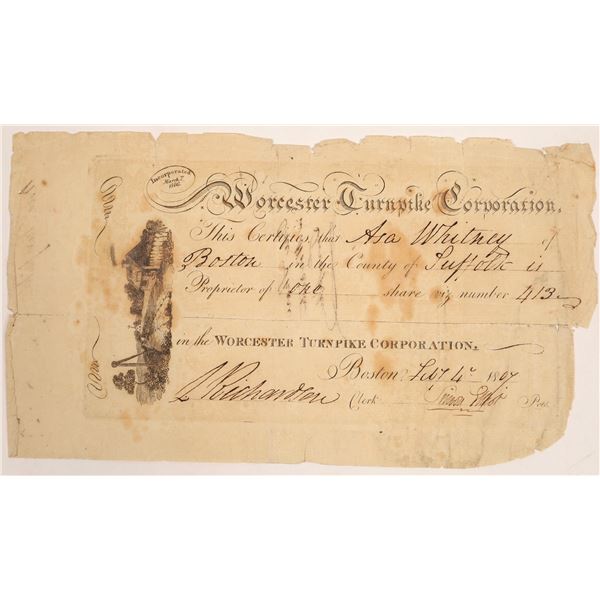 Incorporated
March 7
1806
Worcester Turnpike Corporation.
This Certifies, that Asa Whitney of
Boston in the County of Suffolk is
Proprietor of one share viz number 413
in the WORCESTER TURNPIKE CORPORATION.
Boston 4 1807
Richardson Clerk Pres.